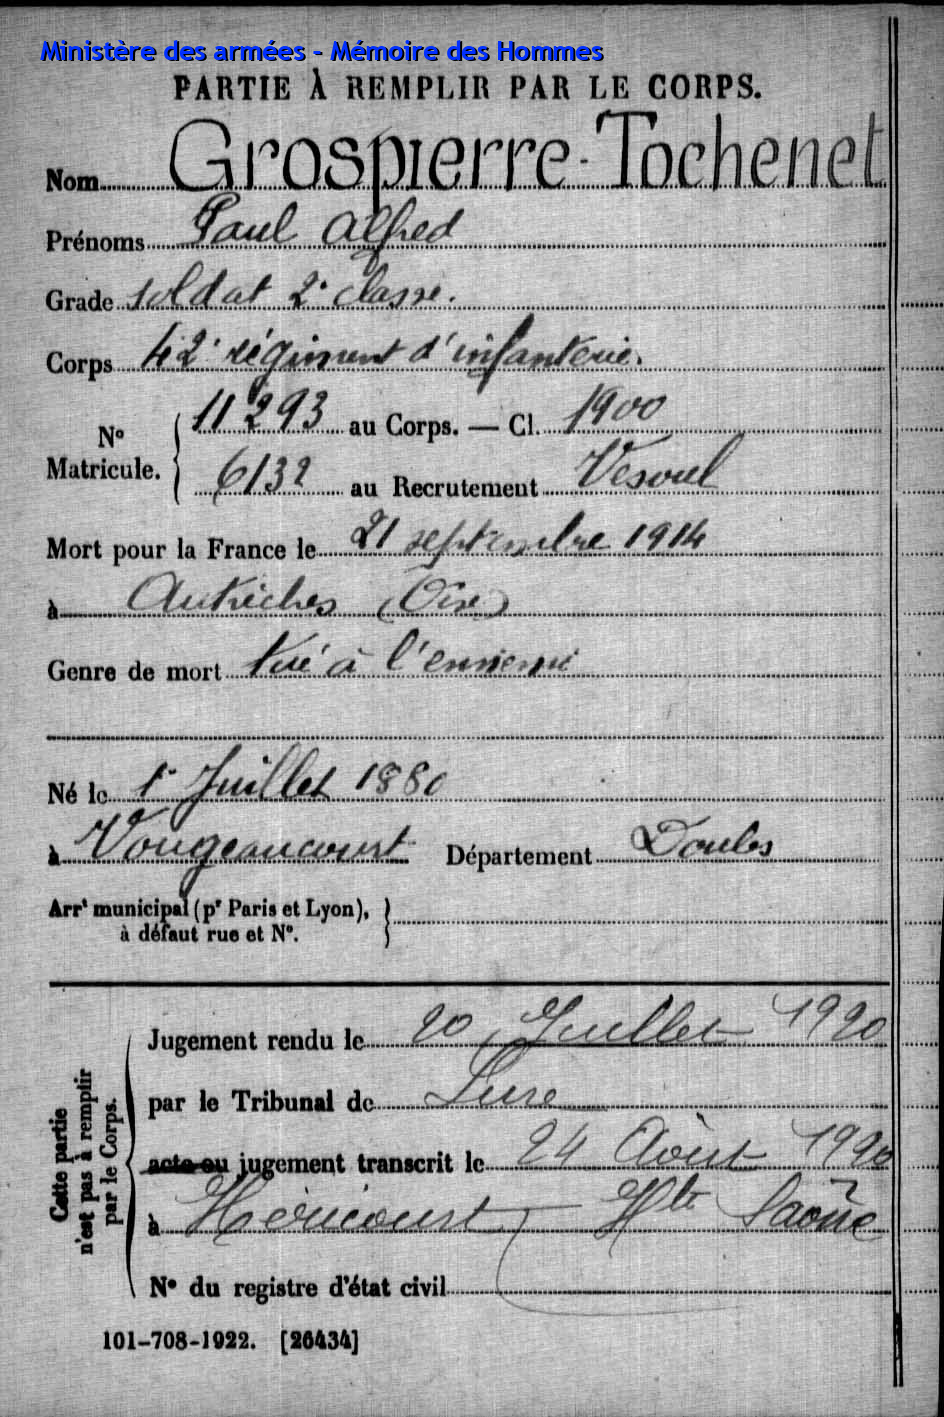 Ministère des armées - Mémoire des Hommes
PARTIE À REMPLIR PAR LE CORPS.
Nom Grospierre-Tochenet
Prénoms Paul Alfred
Grade soldat 2e classe.
Corps 42e régiment d'infanterie.
No Matricule. { 11293 au Corps. — Cl. 1900
6132 au Recrutement Vesoul
Mort pour la France le 21 septembre 1914
à Autrèches (Oise)
Genre de mort tué à l'ennemi
Né le 1er Juillet 1880
à Vougeaucourt Département Doubs
Arrt municipal (pr Paris et Lyon), }
à défaut rue et No.
Cette partie
n'est pas à remplir
par le Corps.
Jugement rendu le 20 Juillet 1920
par le Tribunal de Lure
acte ou jugement transcrit le 24 Août 1920
à Héricourt, Hte Saône
No du registre d'état civil
101-708-1922. [26434]